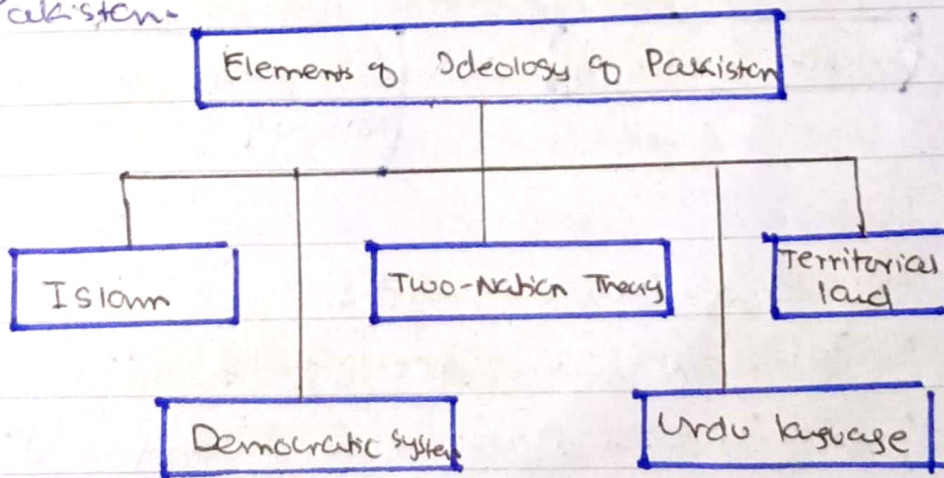 Pakistan-
Elements of Ideology of Pakistan
Islam
Two-Nation Theory
Territorical
land
Democratic System
Urdu language